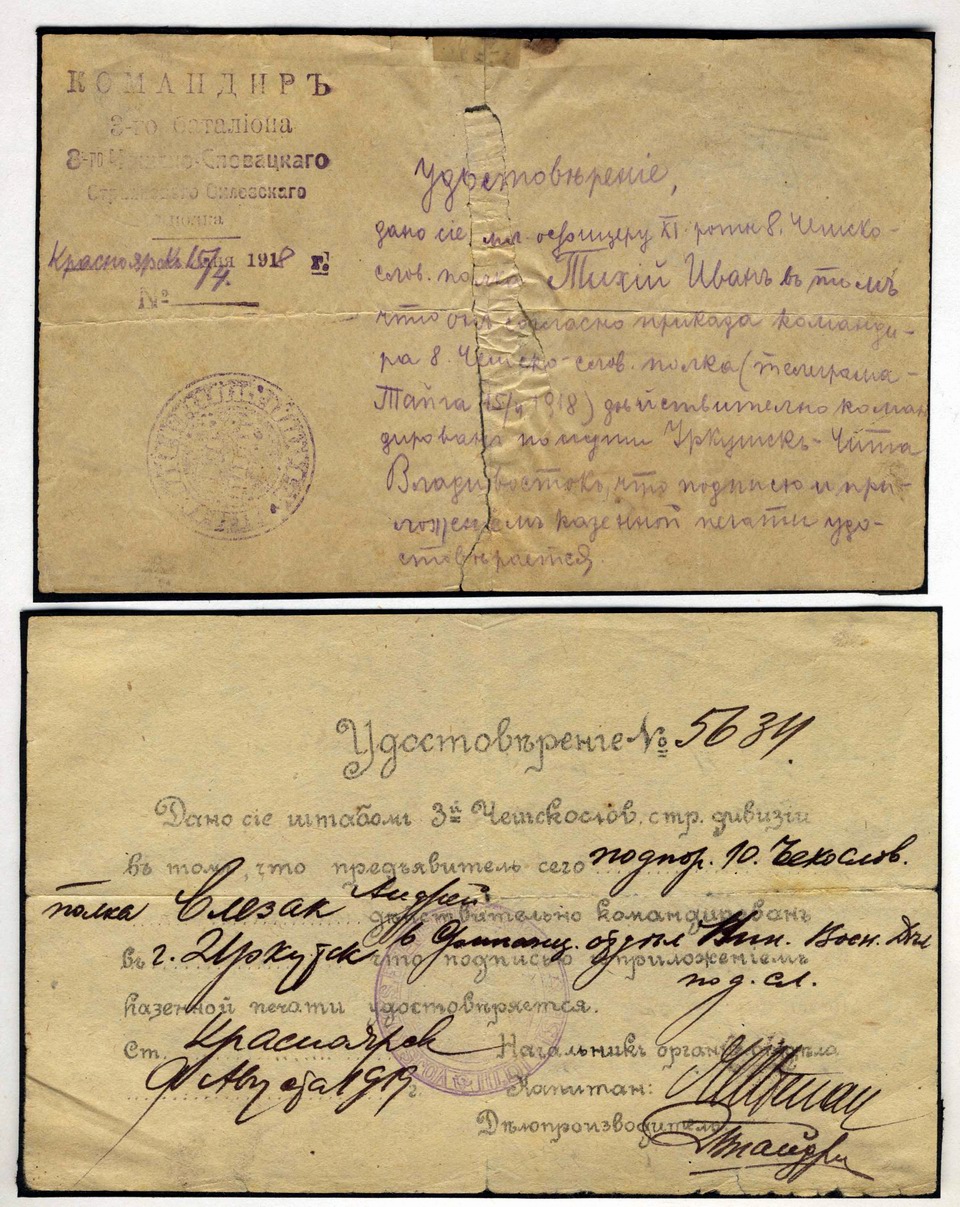 КОМАНДИРЪ
3-го баталіона
8-го Чешско-Словацкаго
Стрѣлковаго Силезскаго
полка
Красноярскъ 15/4. 1918 г.
№
Удостовѣреніе,
дано сіе мл. офицеру XI роты 8. Чешско-
слов. полка Тихій Иванъ въ томъ
что онъ согласно приказа команди-
ра 8. Чешско-слов. полка (телеграма-
Тайга 15/ 1918) дѣйствительно коман
дированъ по пути Иркутскъ-Чита
Владивостокъ, что подписю и при-
ложенемъ казенной печати удо-
стовѣрается.
Удостовѣреніе № 5634
Дано сіе штабомъ 3й Чешскослов. стр. дивизіи
въ томъ, что предъявитель сего подпор. 10. Чекослов.
полка Слезак Андрей дѣйствительно командированъ
въ г. Иркутск в Финанц. отдѣл Воен. что подписью и приложеніемъ
под. сл.
казенной печати удостовѣряется.
Ст. Красноярск Начальникъ органи отдѣла
Августа 1919 г. Капитан:
Дѣлопроизводитель